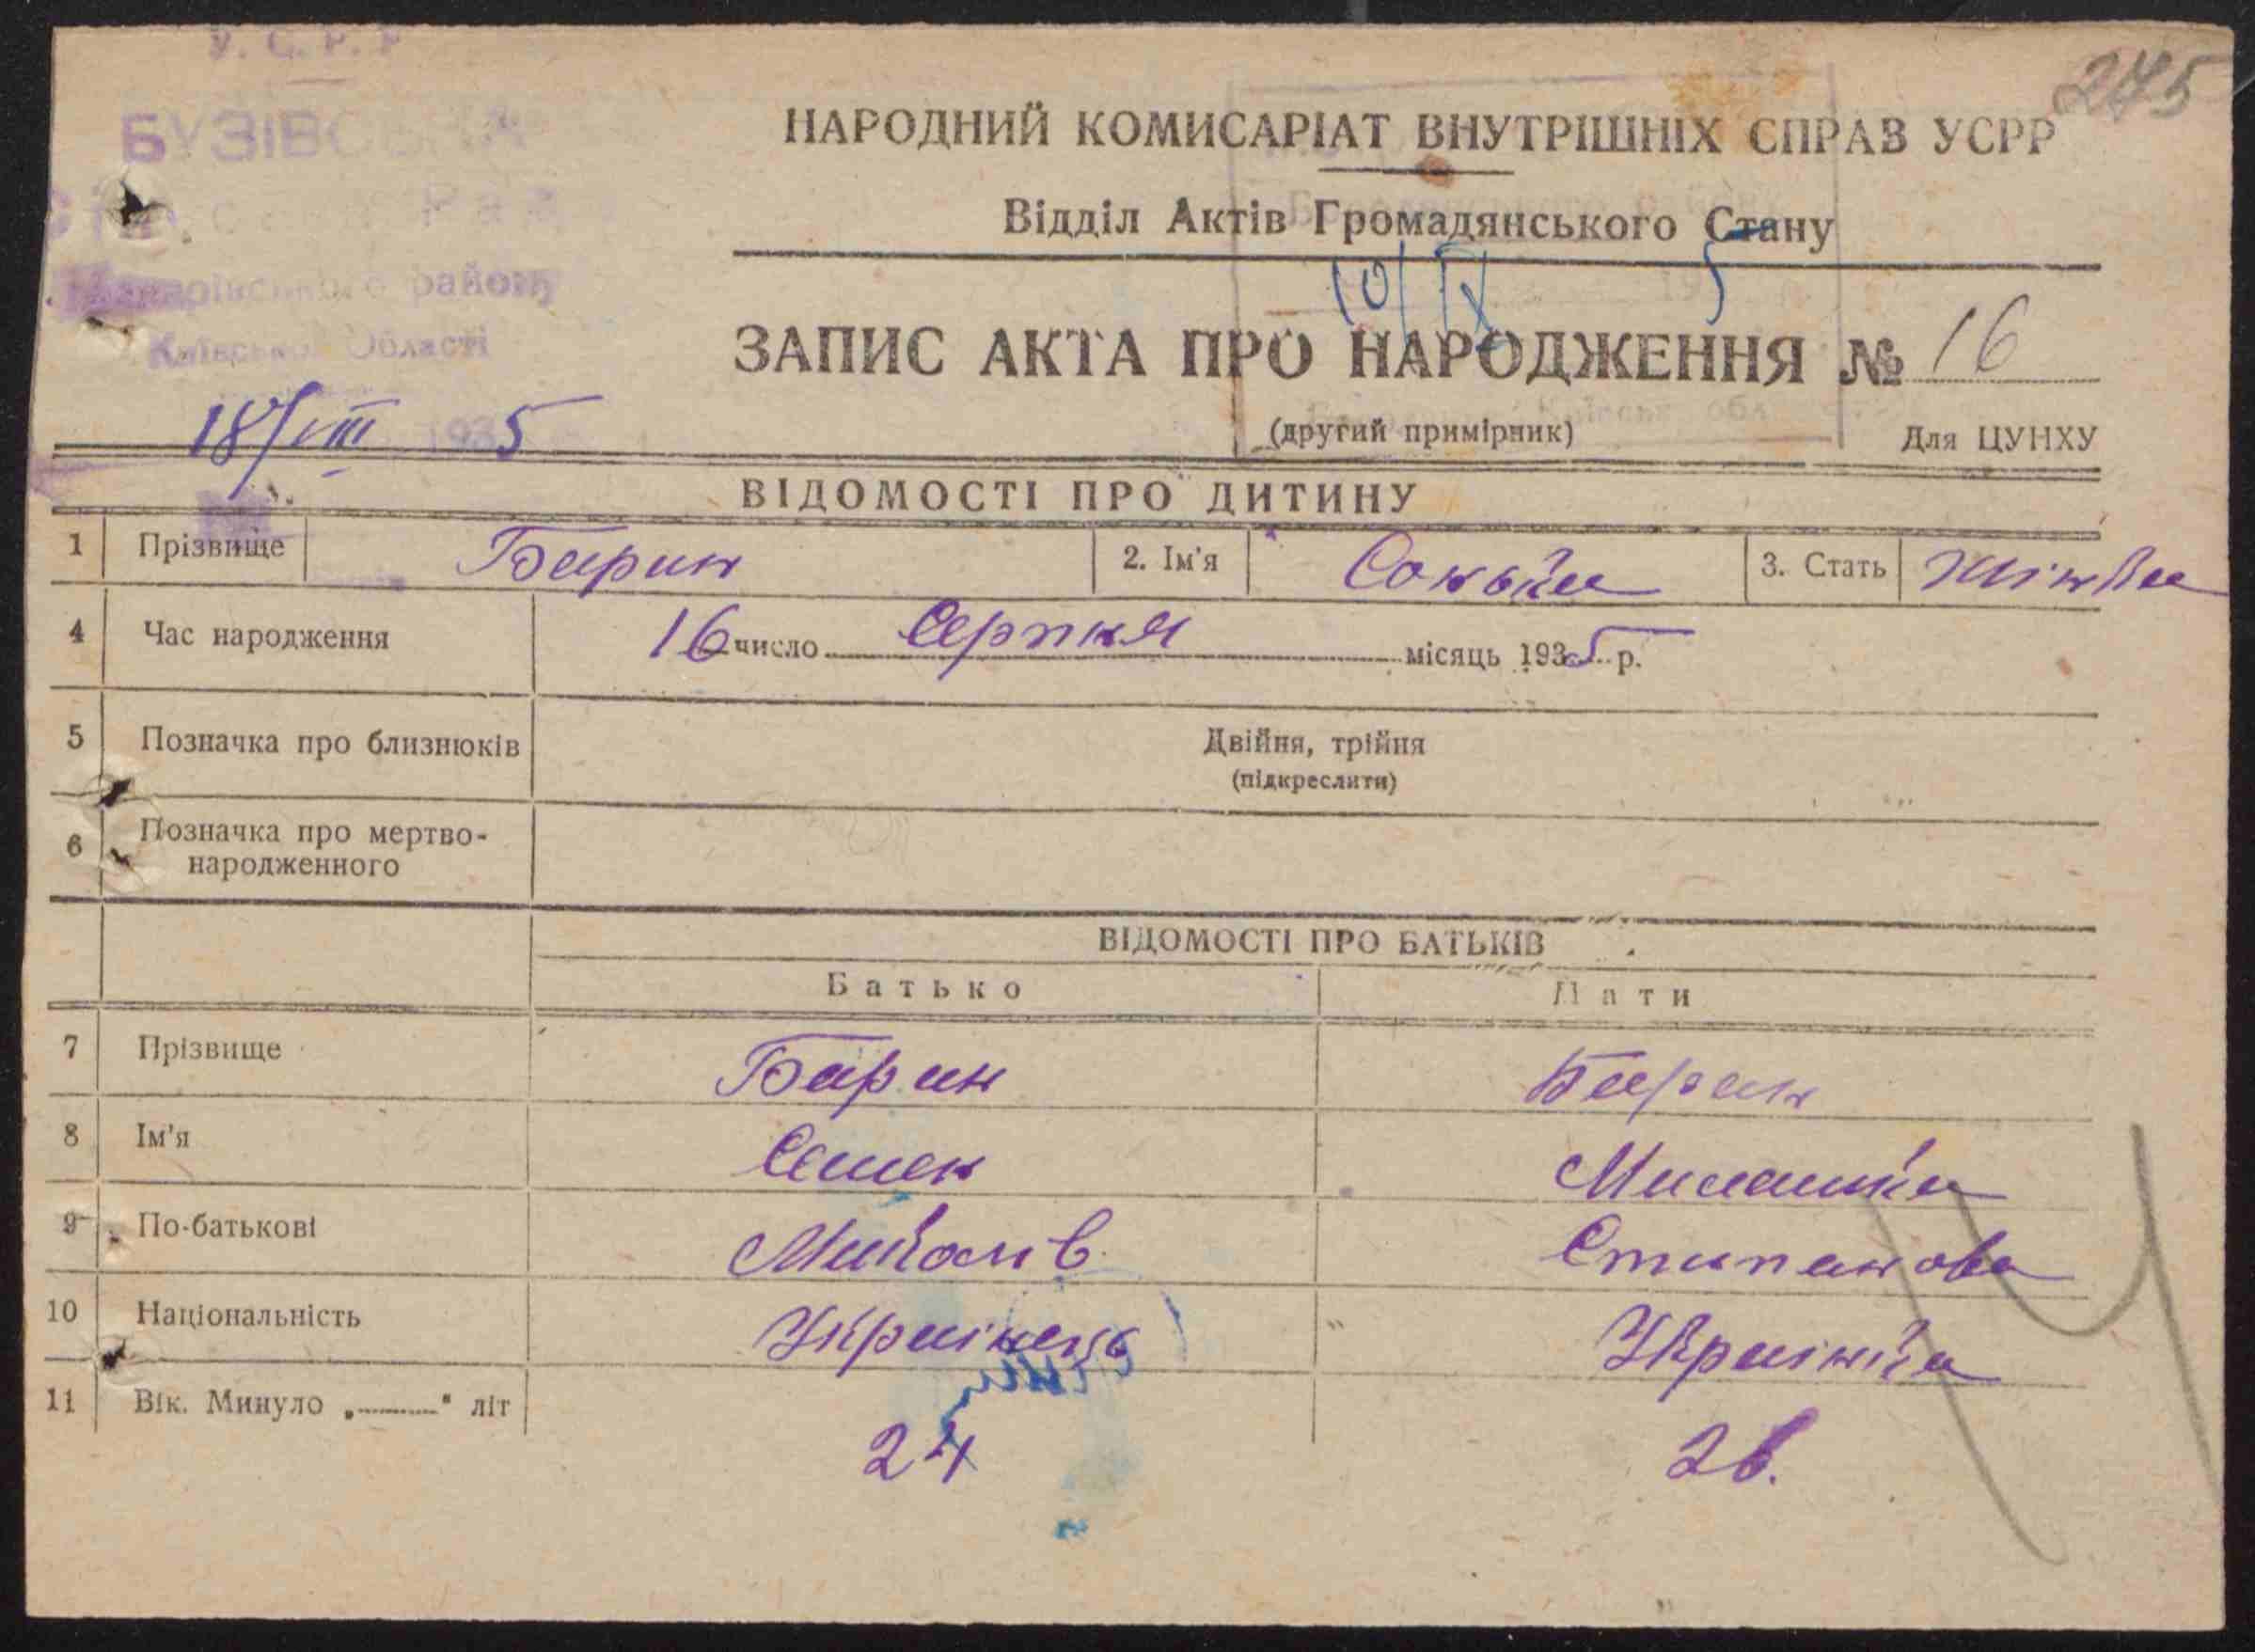 У. С. Р. Р
БУЗІВСЬКА
Сільська Рада
Макарівського району
Київської Області
18/VIII 1935
275
НАРОДНИЙ КОМИСАРІАТ ВНУТРІШНІХ СПРАВ УСРР
Відділ Актів Громадянського Стану
10/IX 5
ЗАПИС АКТА ПРО НАРОДЖЕННЯ № 16
(другий примірник) Для ЦУНХУ
ВІДОМОСТІ ПРО ДИТИНУ
1 Прізвище Барин 2. Ім'я Сонька 3. Стать жінка
4 Час народження 16 число Серпня місяць 1935 р.
5 Позначка про близнюків Двійня, трійня
(підкреслити)
6 Позначка про мертво-
народженного
ВІДОМОСТІ ПРО БАТЬКІВ
Батько Мати
7 Прізвище Барин Барин
8 Ім'я Семен Милашка
9 По-батькові Миколів Степанова
10 Національність Українець Українка
11 Вік. Минуло „ “ літ 24 26.